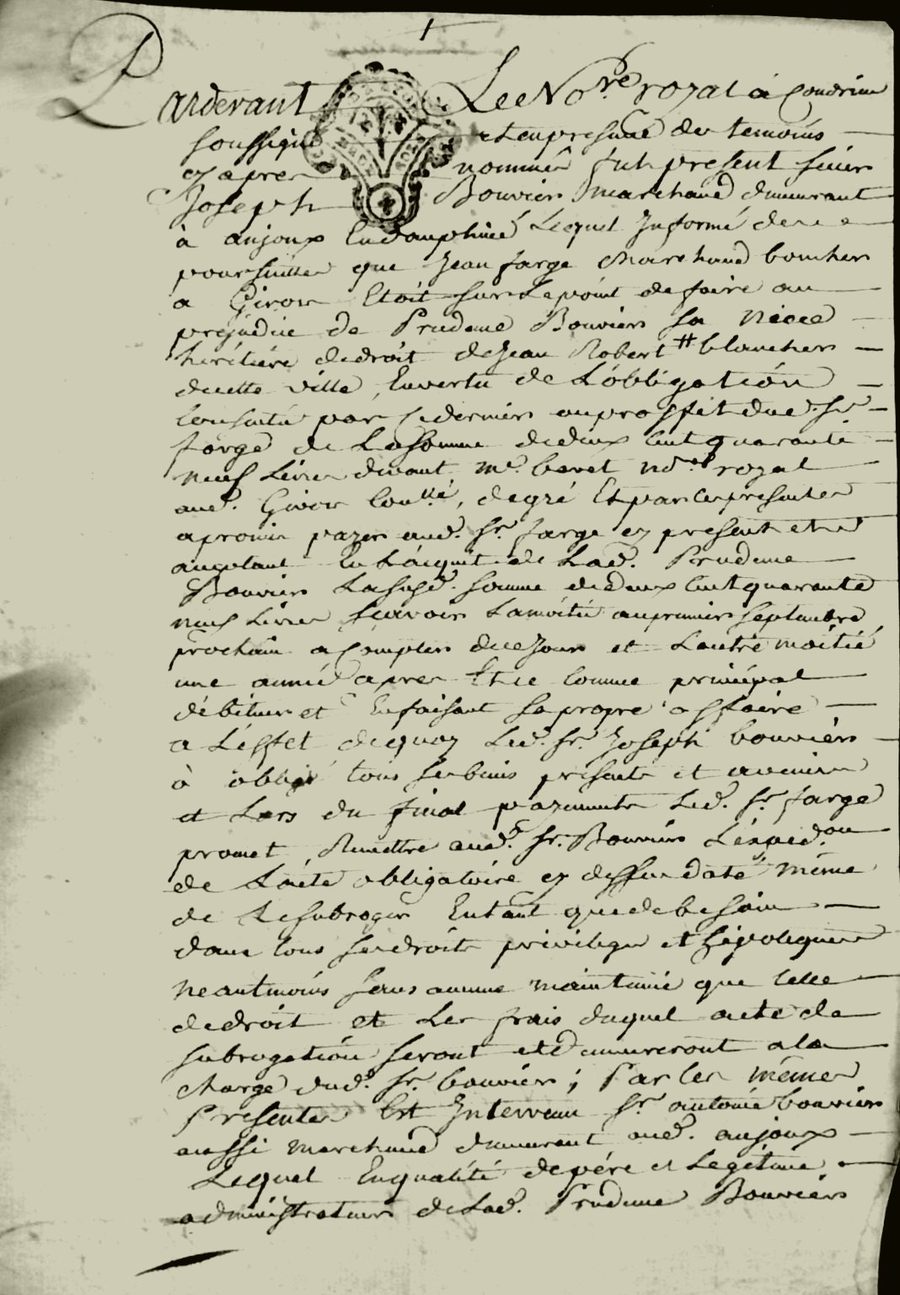 Pardevant Le No.re royal à Condrieu
soussigné et en presence des temoins
cy apres nommés fut present sieur
Joseph Bouvier marchand demeurant
à anjoux En dauphiné Lequel Informé des
poursuittes que Jean farge Marchand boucher
a Givors Etoit sur Le point de faire au
prejudice de Prudence Bouvier sa niece
héritiére de droit de Jean Robert # blancher
de cette ville En vertu de L'obligation
Consentie par ce dernier au proffit dud. Sr
farge de La somme de deux Cent quarante
neuf Livres devant me. bavet no.re royal
aud. Givors Con.llé, de gré Et par ces presentes
a promis payer aud. Sr. farge cy present et
aceptant En L'acquit de Lad. Prudence
Bouvier La susd. somme de deux Cent quarante
neuf Livres scavoir La moitié au premier septembre
prochain a Compter de ce Jour et Lautre moitié
une année apres Et ce Comme principal
débiteur et En faisant sa propre affaire
a L'effet de quoy Led. Sr. Joseph bouvier
à obligé tous ses biens présents et avenir
et Lors du final payement Led. Sr. farge
promet Remettre aud. Sr. Bouvier L'expéd.on
de L'acte obligatoire cy dessus daté même
de Le subroger En tant que de besoin
dans tous ses droits privileges et hÿpoteques
neantmoins sans aucune maintenüe que celle
de droit et Les frais duquel acte de
subrogation seront et demeureront a la
charge dud. Sr. bouvier; Par les mêmes
Présentes Est Intervenu Sr. antoine bouvier
aussi marchand demeurant aud. anjoux
Lequel En qualité de pére et Legitime
administrateur de Lad. Prudence Bouvier